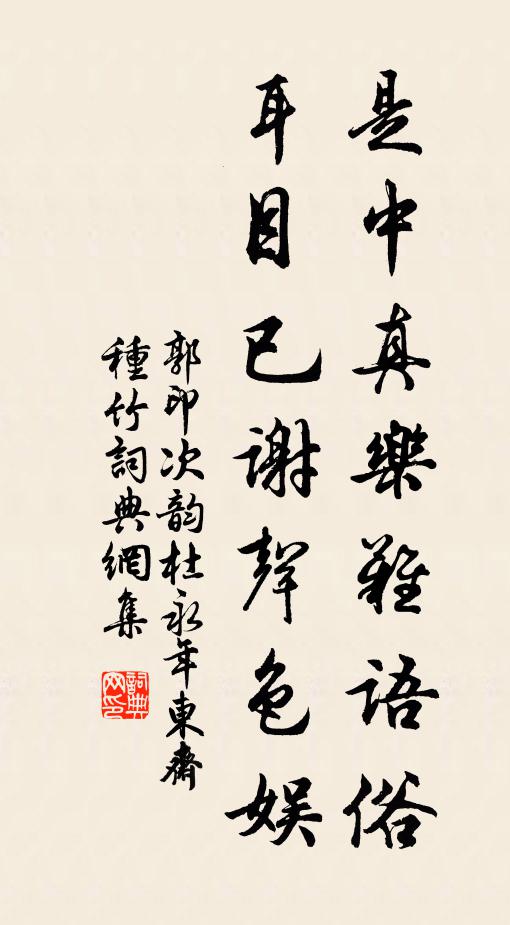 是中真樂難語俗
耳目已謝聲色娛
郭印次韵杜永年東齋
種竹詞典網集
詞典
网印